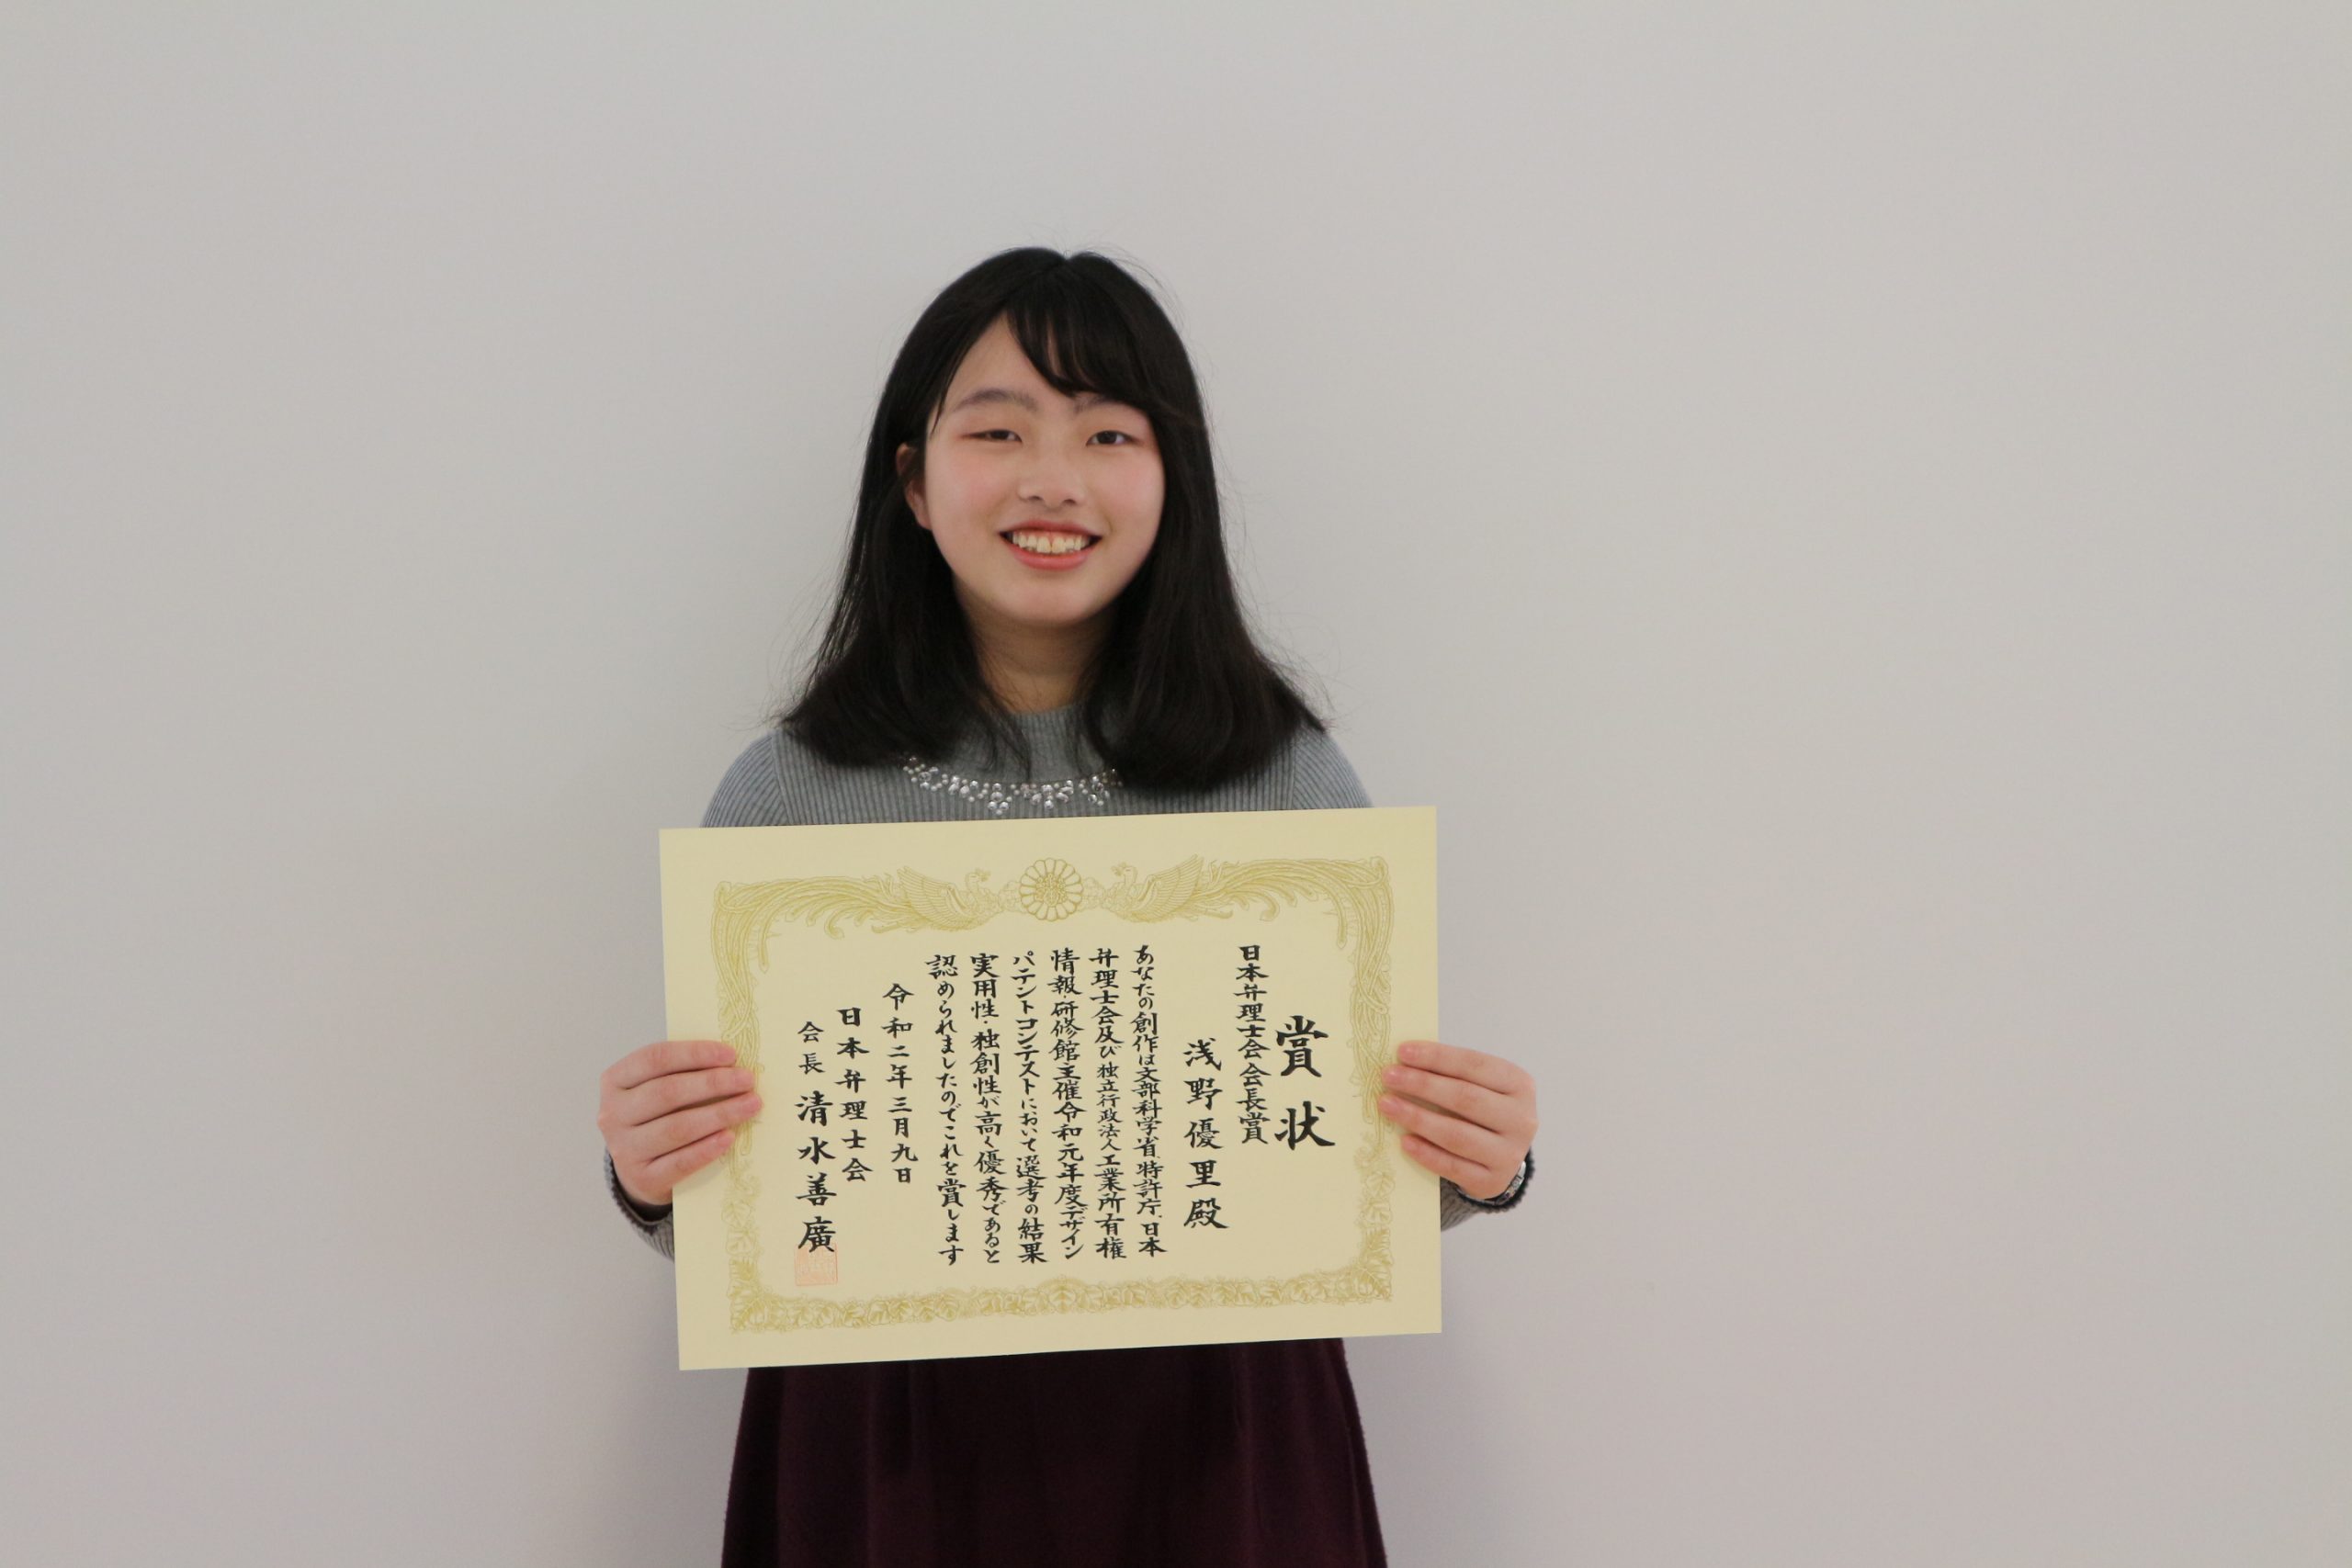 賞状
日本弁理士会会長賞
浅野優里殿
あなたの創作は文部科学省、特許庁、日本
弁理士会及び独立行政法人工業所有権
情報・研修館主催令和元年度デザイン
パテントコンテストにおいて選考の結果
実用性・独創性が高く優秀であると
認められましたのでこれを賞します
令和二年三月九日
日本弁理士会
会長 清水善廣